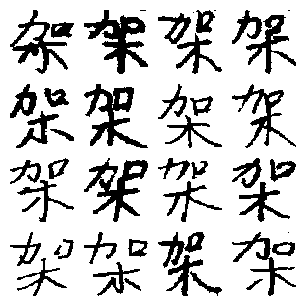 架架架架
架架架架
架架架架
架架架架